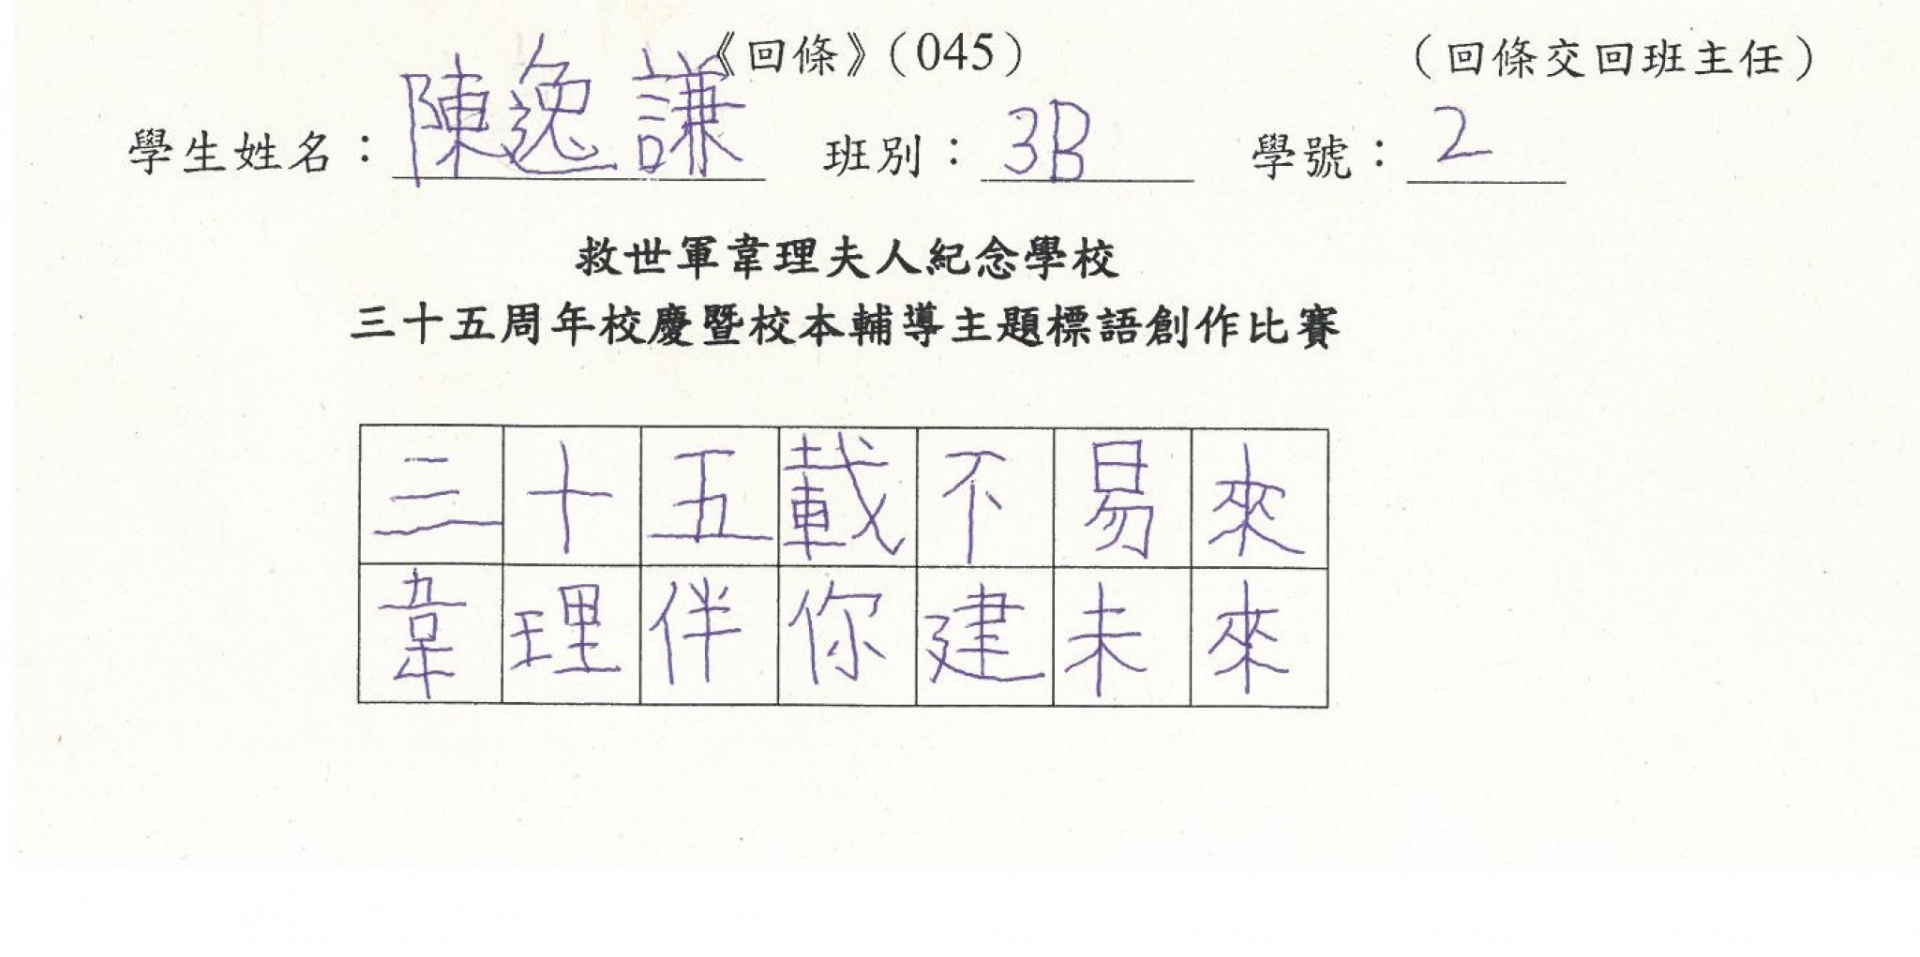 《回條》(045)
(回條交回班主任)
學生姓名：陳逸謙 班別：3B 學號：2
救世軍韋理夫人紀念學校
三十五周年校慶暨校本輔導主題標語創作比賽
三十五載不易來
韋理伴你建未來